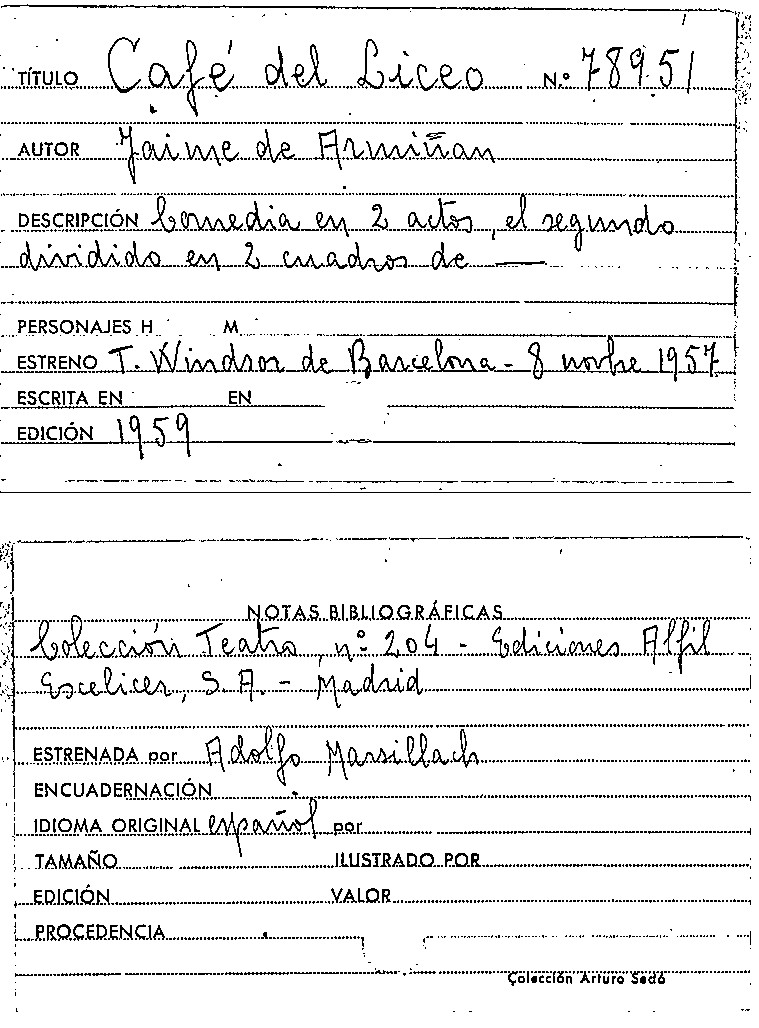 TÍTULO Café del Liceo N.º 78951
AUTOR Jaime de Armiñan
DESCRIPCIÓN Comedia en 2 actos, el segundo
dividido en 2 cuadros de —
PERSONAJES H M
ESTRENO T. Windsor de Barcelona - 8 novbre 1957
ESCRITA EN EN
EDICIÓN 1959
NOTAS BIBLIOGRÁFICAS
Colección Teatro, nº 204 - Ediciones Alfil
Escelicer, S. A. - Madrid
ESTRENADA por Adolfo Marsillach
ENCUADERNACIÓN
IDIOMA ORIGINAL español por
TAMAÑO ILUSTRADO POR
EDICIÓN VALOR
PROCEDENCIA
Colección Arturo Sedó